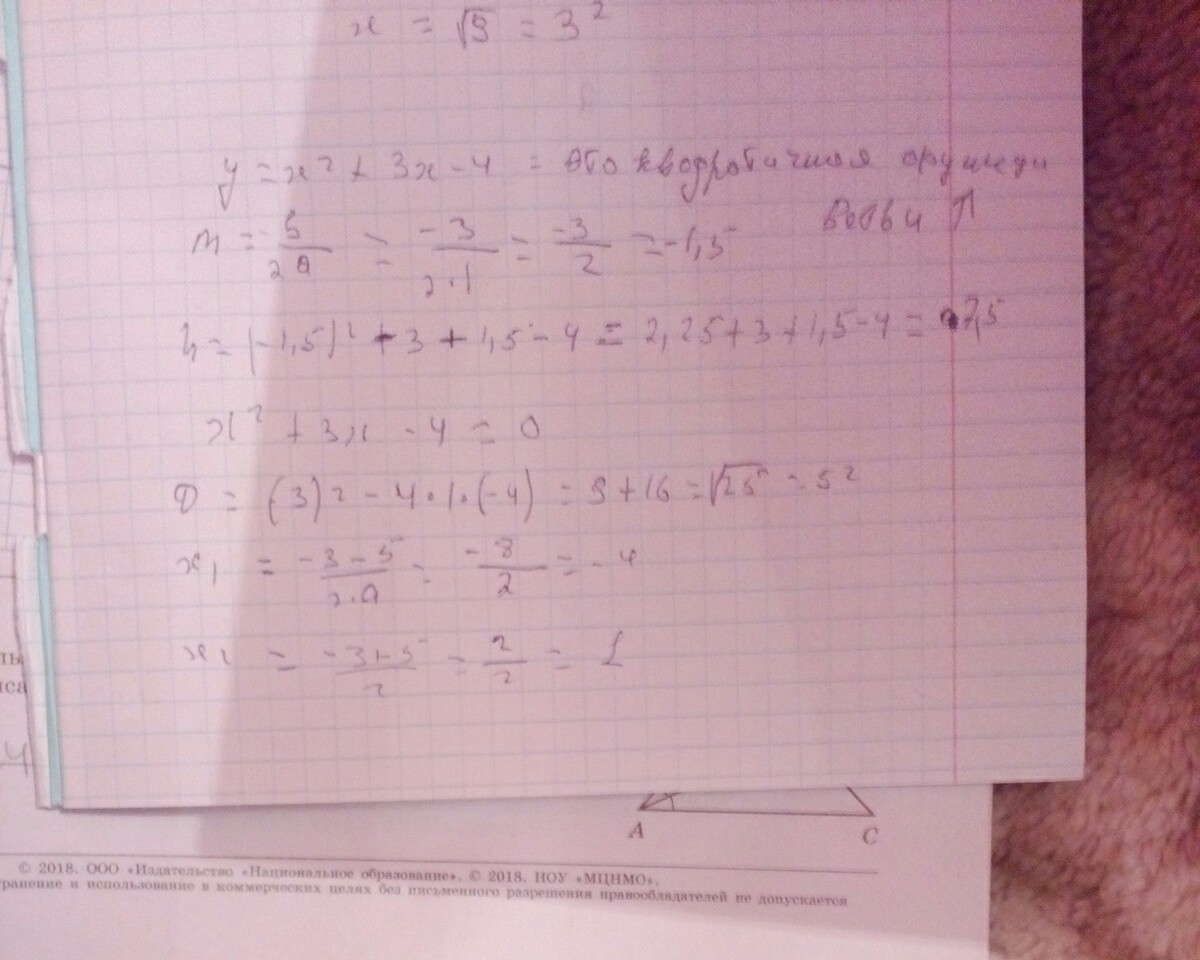 x = √9 = 3²
y = x² + 3x - 4 = это квадротичная
ветви ↑
m = -b/2a = -3/2·1 = -3/2 = -1,5
n = (-1,5)² + 3 + 1,5 - 4 = 2,25 + 3 + 1,5 - 4 = 7,5
x² + 3x - 4 = 0
D = (3)² - 4·1·(-4) = 9 + 16 = √25 = 5²
x₁ = -3-5/2·a = -8/2 = -4
x₂ = -3+5/2 = 2/2 = 1
4
A C
© 2018. ООО «Издательство «Национальное образование». © 2018. НОУ «МЦНМО».
использование в коммерческих целях без письменного разрешения правообладателей не допускается